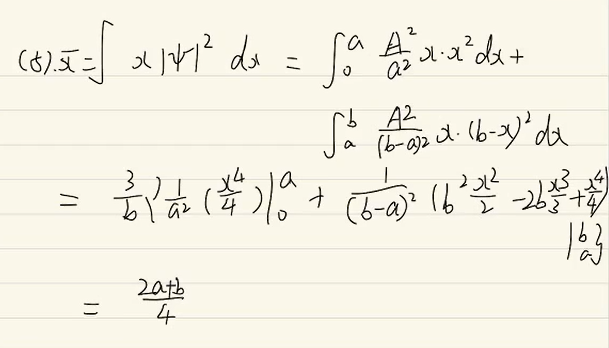 (5). x̄ = ∫ x |Ψ|² dx = ∫₀ᵃ A²/a² x·x² dx +
∫ₐᵇ A²/(b-a)² x·(b-x)² dx
= 3/b { 1/a² (x⁴/4) |₀ᵃ + 1/(b-a)² (b² x²/2 - 2b x³/3 + x⁴/4)
|ₐᵇ }
= (2a+b)/4